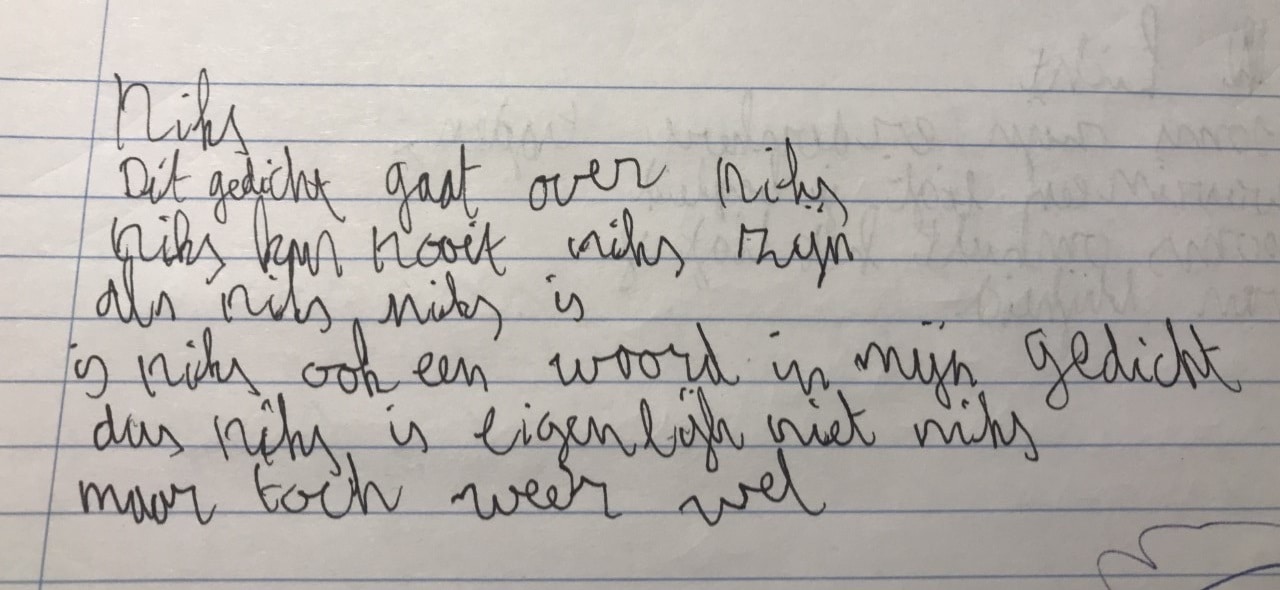 Niks
Dit gedicht gaat over niks
Niks kan nooit niks zijn
als niks niks is
is niks ook een woord in mijn gedicht
dus niks is eigenlijk niet niks
maar toch weer wel